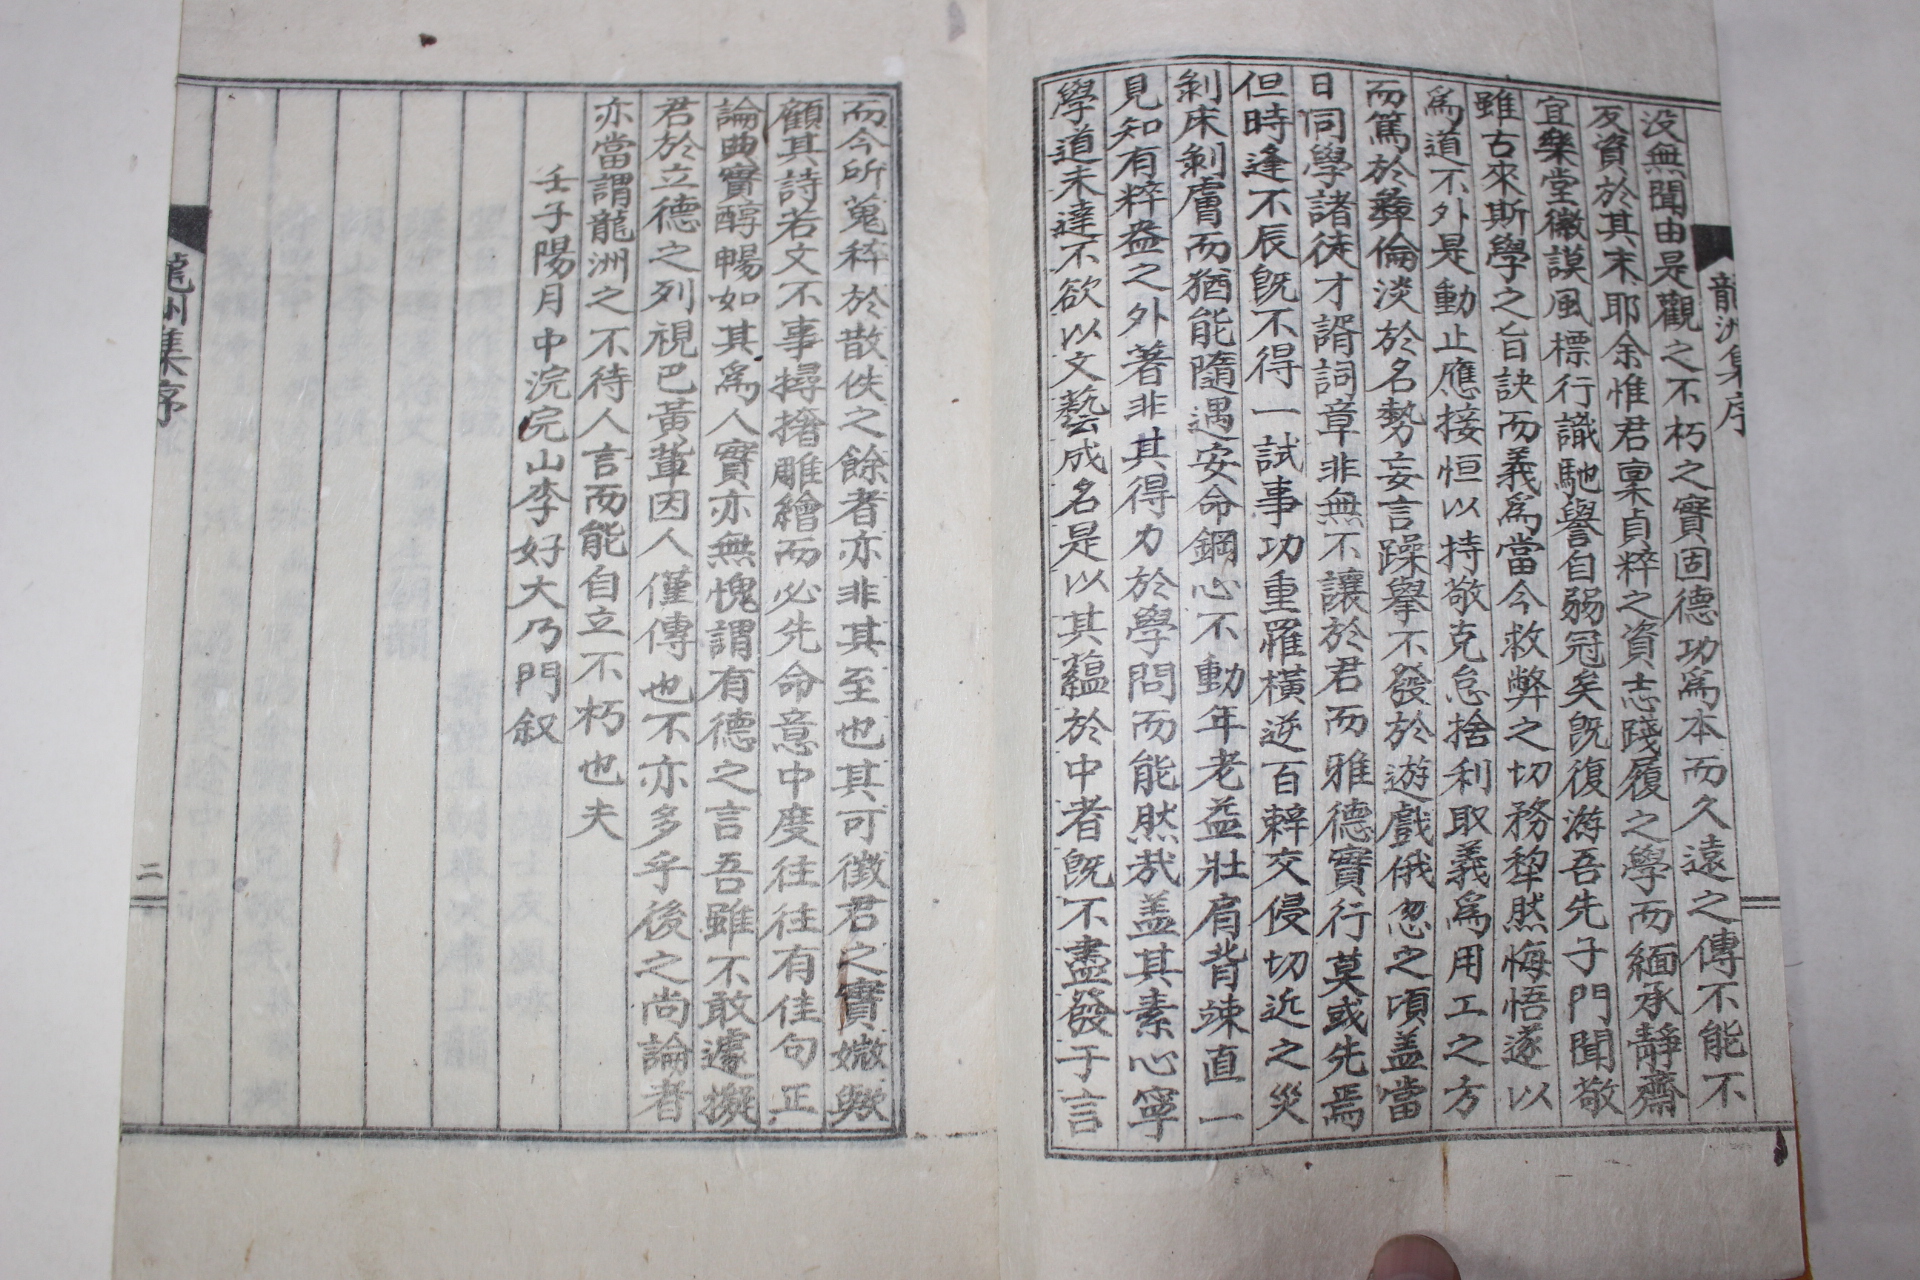 龍洲集序
没無聞由是觀之不朽之實固德功爲本而久遠之傳不能不
反資於其末耶余惟君稟貞粹之資志踐履之學而緬承靜齋
宜樂堂徽謨風標行識馳譽自弱冠矣旣復游吾先子門聞敬
雖古來斯學之旨訣而義爲當今救弊之切務犂然悔悟遂以
爲道不外是動止應接恒以持敬克怠捨利取義爲用工之方
而篤於彛倫淡於名勢妄言躁擧不發於遊戱俄忽之頃盖當
日同學諸徒才諝詞章非無不讓於君而雅德實行莫或先焉
但時逢不辰旣不得一試事功重罹橫逆百棘交侵切近之災
剝床剝膚而猶能隨遇安命鋼心不動年老益壯肩背竦直一
見知有粹盎之外著非其得力於學問而能然哉盖其素心寧
學道未達不欲以文藝成名是以其蘊於中者旣不盡發于言
而今所蒐稡於散佚之餘者亦非其至也其可徵君之實媺歟
顧其詩若文不事撏撦雕繪而必先命意中度往往有佳句正
論典實醇暢如其爲人實亦無愧謂有德之言吾雖不敢遽擬
君於立德之列視巴黃輩因人僅傳也不亦多乎後之尚論者
亦當謂龍洲之不待人言而能自立不朽也夫
壬子陽月中浣完山李好大乃門叙
龍洲集序
二